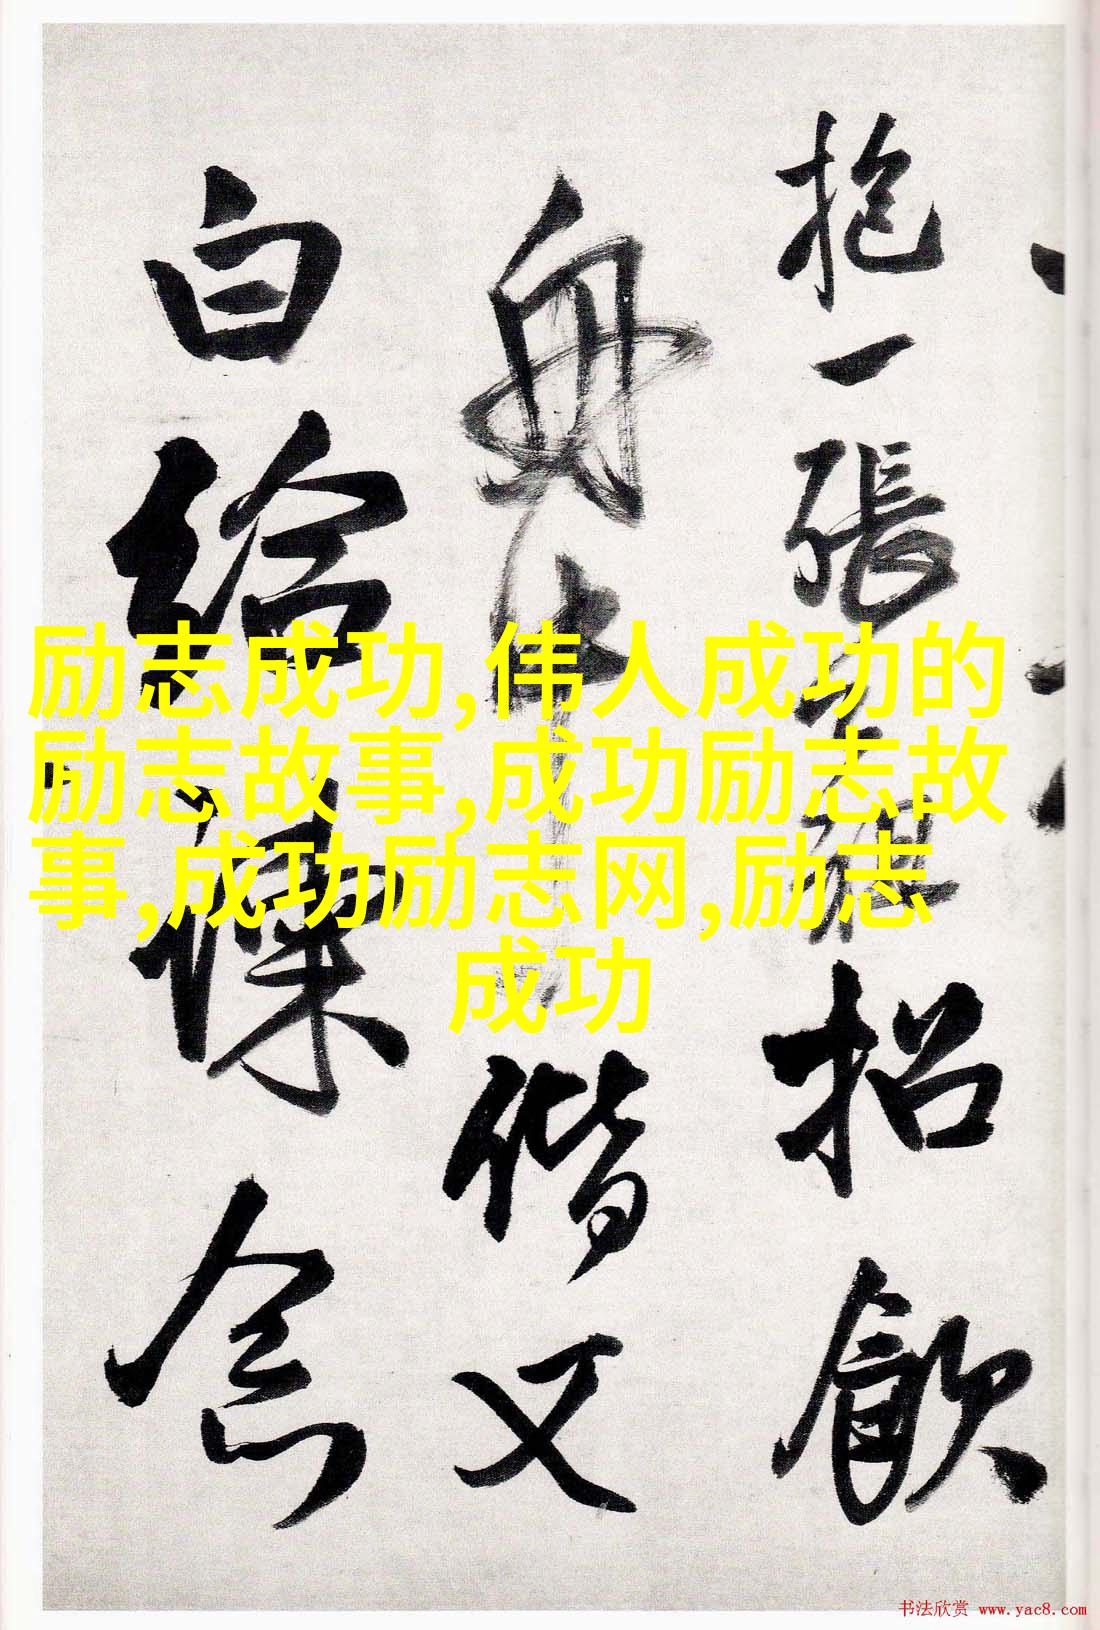 抱一張
招飲
舟中
偕又
白給諫
念
励志成功,伟人成功的
励志故事,成功励志故
事,成功励志网,励志
成功
书法欣赏 www.yac8.com